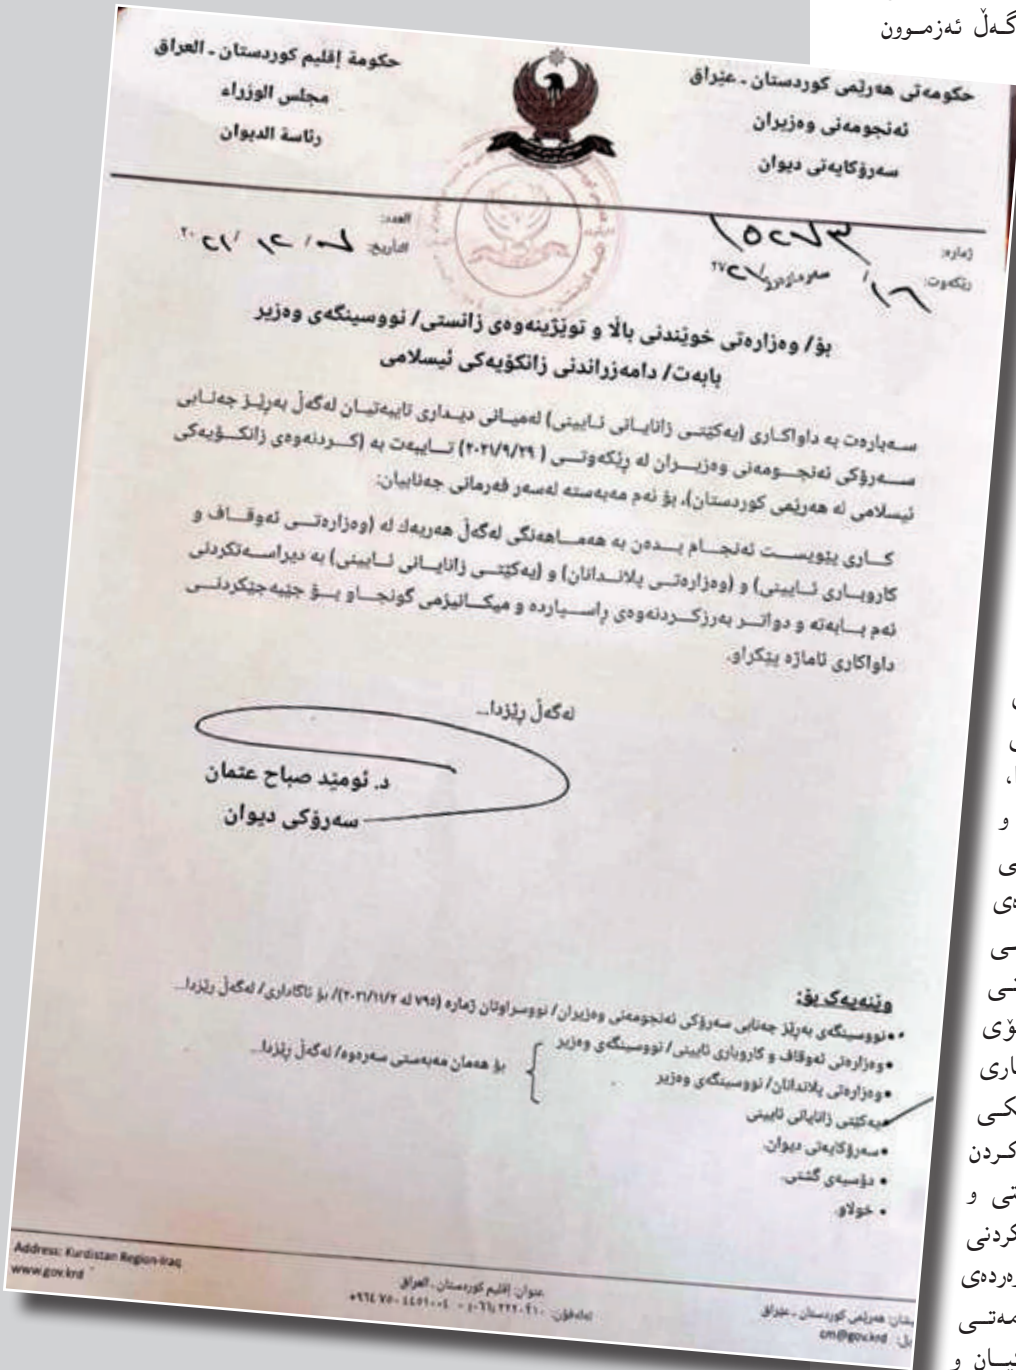 گەڵ ئەزموون
حکومەتی هەرێمی کوردستان ـ عێراق
ئەنجومەنی وەزیران
سەرۆکایەتی دیوان
حكومة إقليم كوردستان ـ العراق
مجلس الوزراء
رئاسة الديوان
ژمارە:
ڕێکەوت:
العدد:
التأريخ:
بۆ/ وەزارەتی خوێندنی باڵا و توێژینەوەی زانستی/ نووسینگەی وەزیر
بابەت/ دامەزراندنی زانکۆیەکی ئیسلامی
سەبارەت بە داواکاری (یەکێتی زانایانی ئایینی) لەمیانی دیداری تایبەتیان لەگەڵ بەڕێز جەنابی
سەرۆکی ئەنجومەنی وەزیران لە ڕێکەوتی (٢٠٢١/٩/٢٩) تایبەت بە (کردنەوەی زانکۆیەکی
ئیسلامی لە هەرێمی کوردستان)، بۆ ئەم مەبەستە لەسەر فەرمانی جەنابیان:
کاری پێویست ئەنجام بدەن بە هەماهەنگی لەگەڵ هەریەك لە (وەزارەتی ئەوقاف و
کاروباری ئایینی) و (وەزارەتی پلاندانان) و (یەکێتی زانایانی ئایینی) بە دیراسەتکردنی
ئەم بابەتە و دواتر بەرزکردنەوەی ڕاسپاردە و میکانیزمی گونجاو بۆ جێبەجێکردنی
داواکاری ئاماژە پێکراو.
لەگەڵ ڕێزدا...
د. ئومێد صباح عثمان
سەرۆکی دیوان
وێنەیەک بۆ:
• نووسینگەی بەڕێز جەنابی سەرۆکی ئەنجومەنی وەزیران/ نووسراوتان ژمارە (٧٩٥ لە ٢٠٢١/١١/٢)/ بۆ ئاگاداری/ لەگەڵ ڕێزدا...
• وەزارەتی ئەوقاف و کاروباری ئایینی/ نووسینگەی وەزیر
• وەزارەتی پلاندانان/ نووسینگەی وەزیر
بۆ هەمان مەبەستی سەرەوە/ لەگەڵ ڕێزدا...
• یەکێتی زانایانی ئایینی
• سەرۆکایەتی دیوان.
• دۆسیەی گشتی.
• خولاو.
Address: Kurdistan Region-Iraq
www.gov.krd
عنوان: إقليم كوردستان ـ العراق
هەرێمی کوردستان ـ عێراق
cm@gov.krd